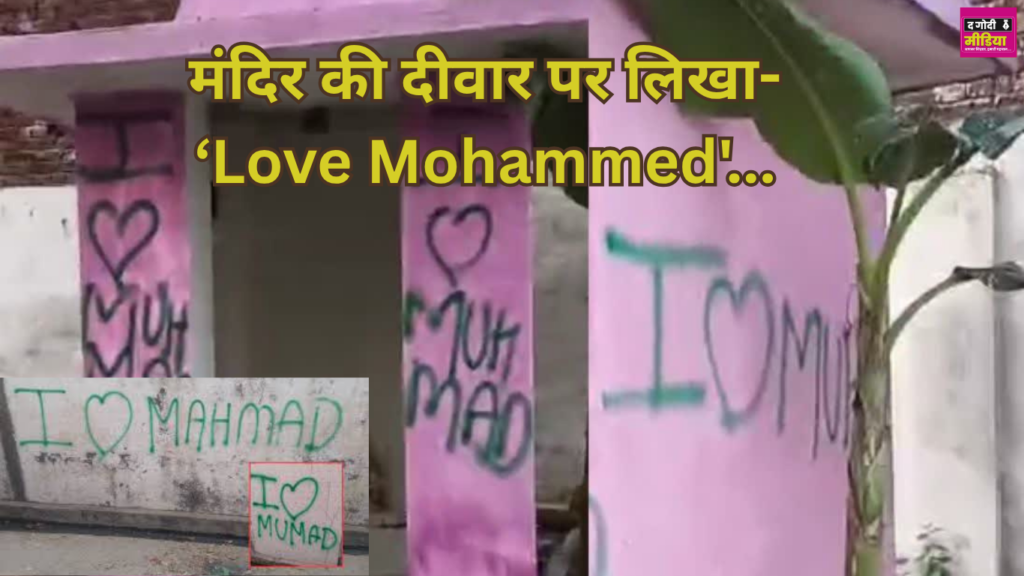 द गोदी
मीडिया
मंदिर की दीवार पर लिखा-
‘Love Mohammed'...
I
♡
MUH
I
♡
MUH
MAD
I ♡ MUH
I ♡ MAHMAD
I ♡
MUMAD